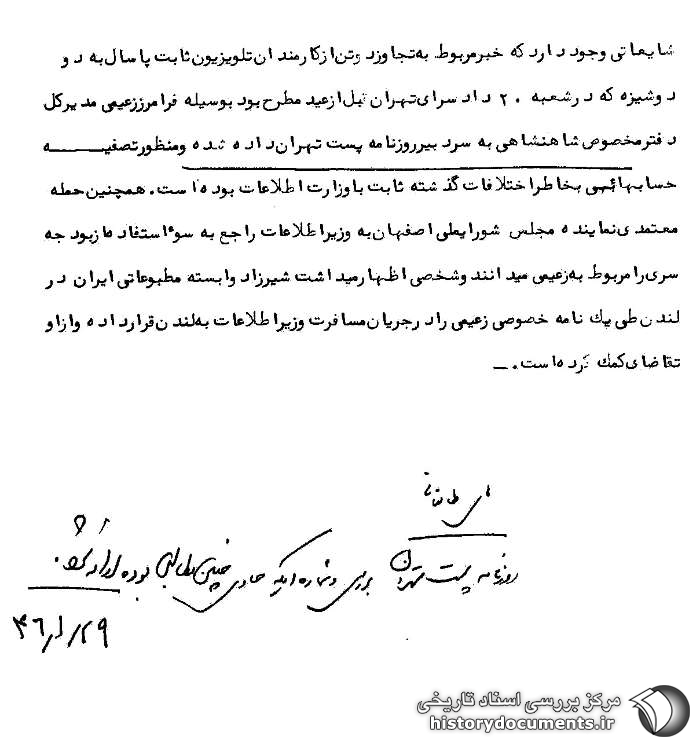 شایعاتی وجود دارد که خبر مربوط به تجاوز دو تن از کارمندان تلویزیون ثابت پاسال به دو
دوشیزه که در شعبه ۲۰ دادسرای تهران قبل از عید مطرح بود بوسیله فرامرز زعیمی مدیرکل
دفتر مخصوص شاهنشاهی به سردبیر روزنامه پست تهران داده شده و منظور تصفیه
حسابهائی بخاطر اختلافات گذشته ثابت با وزارت اطلاعات بوده است. همچنین حمله
معتمدی نماینده مجلس شورایملی اصفهان به وزیر اطلاعات راجع به سوء استفاده از بودجه
سری را مربوط به زعیمی میدانند و شخصی اظهار میداشت شیرزاد وابسته مطبوعاتی ایران در
لندن طی یک نامه خصوصی زعیمی را در جریان مسافرت وزیر اطلاعات به لندن قرار داده و از او
تقاضای کمک کرده است. –
روزنامه پست تهران بررسی و شماره ایکه حاوی چنین مطالبی بوده ارائه شود.
۴۶/۱/۲۹
مرکز بررسی اسناد تاریخی
historydocuments.ir